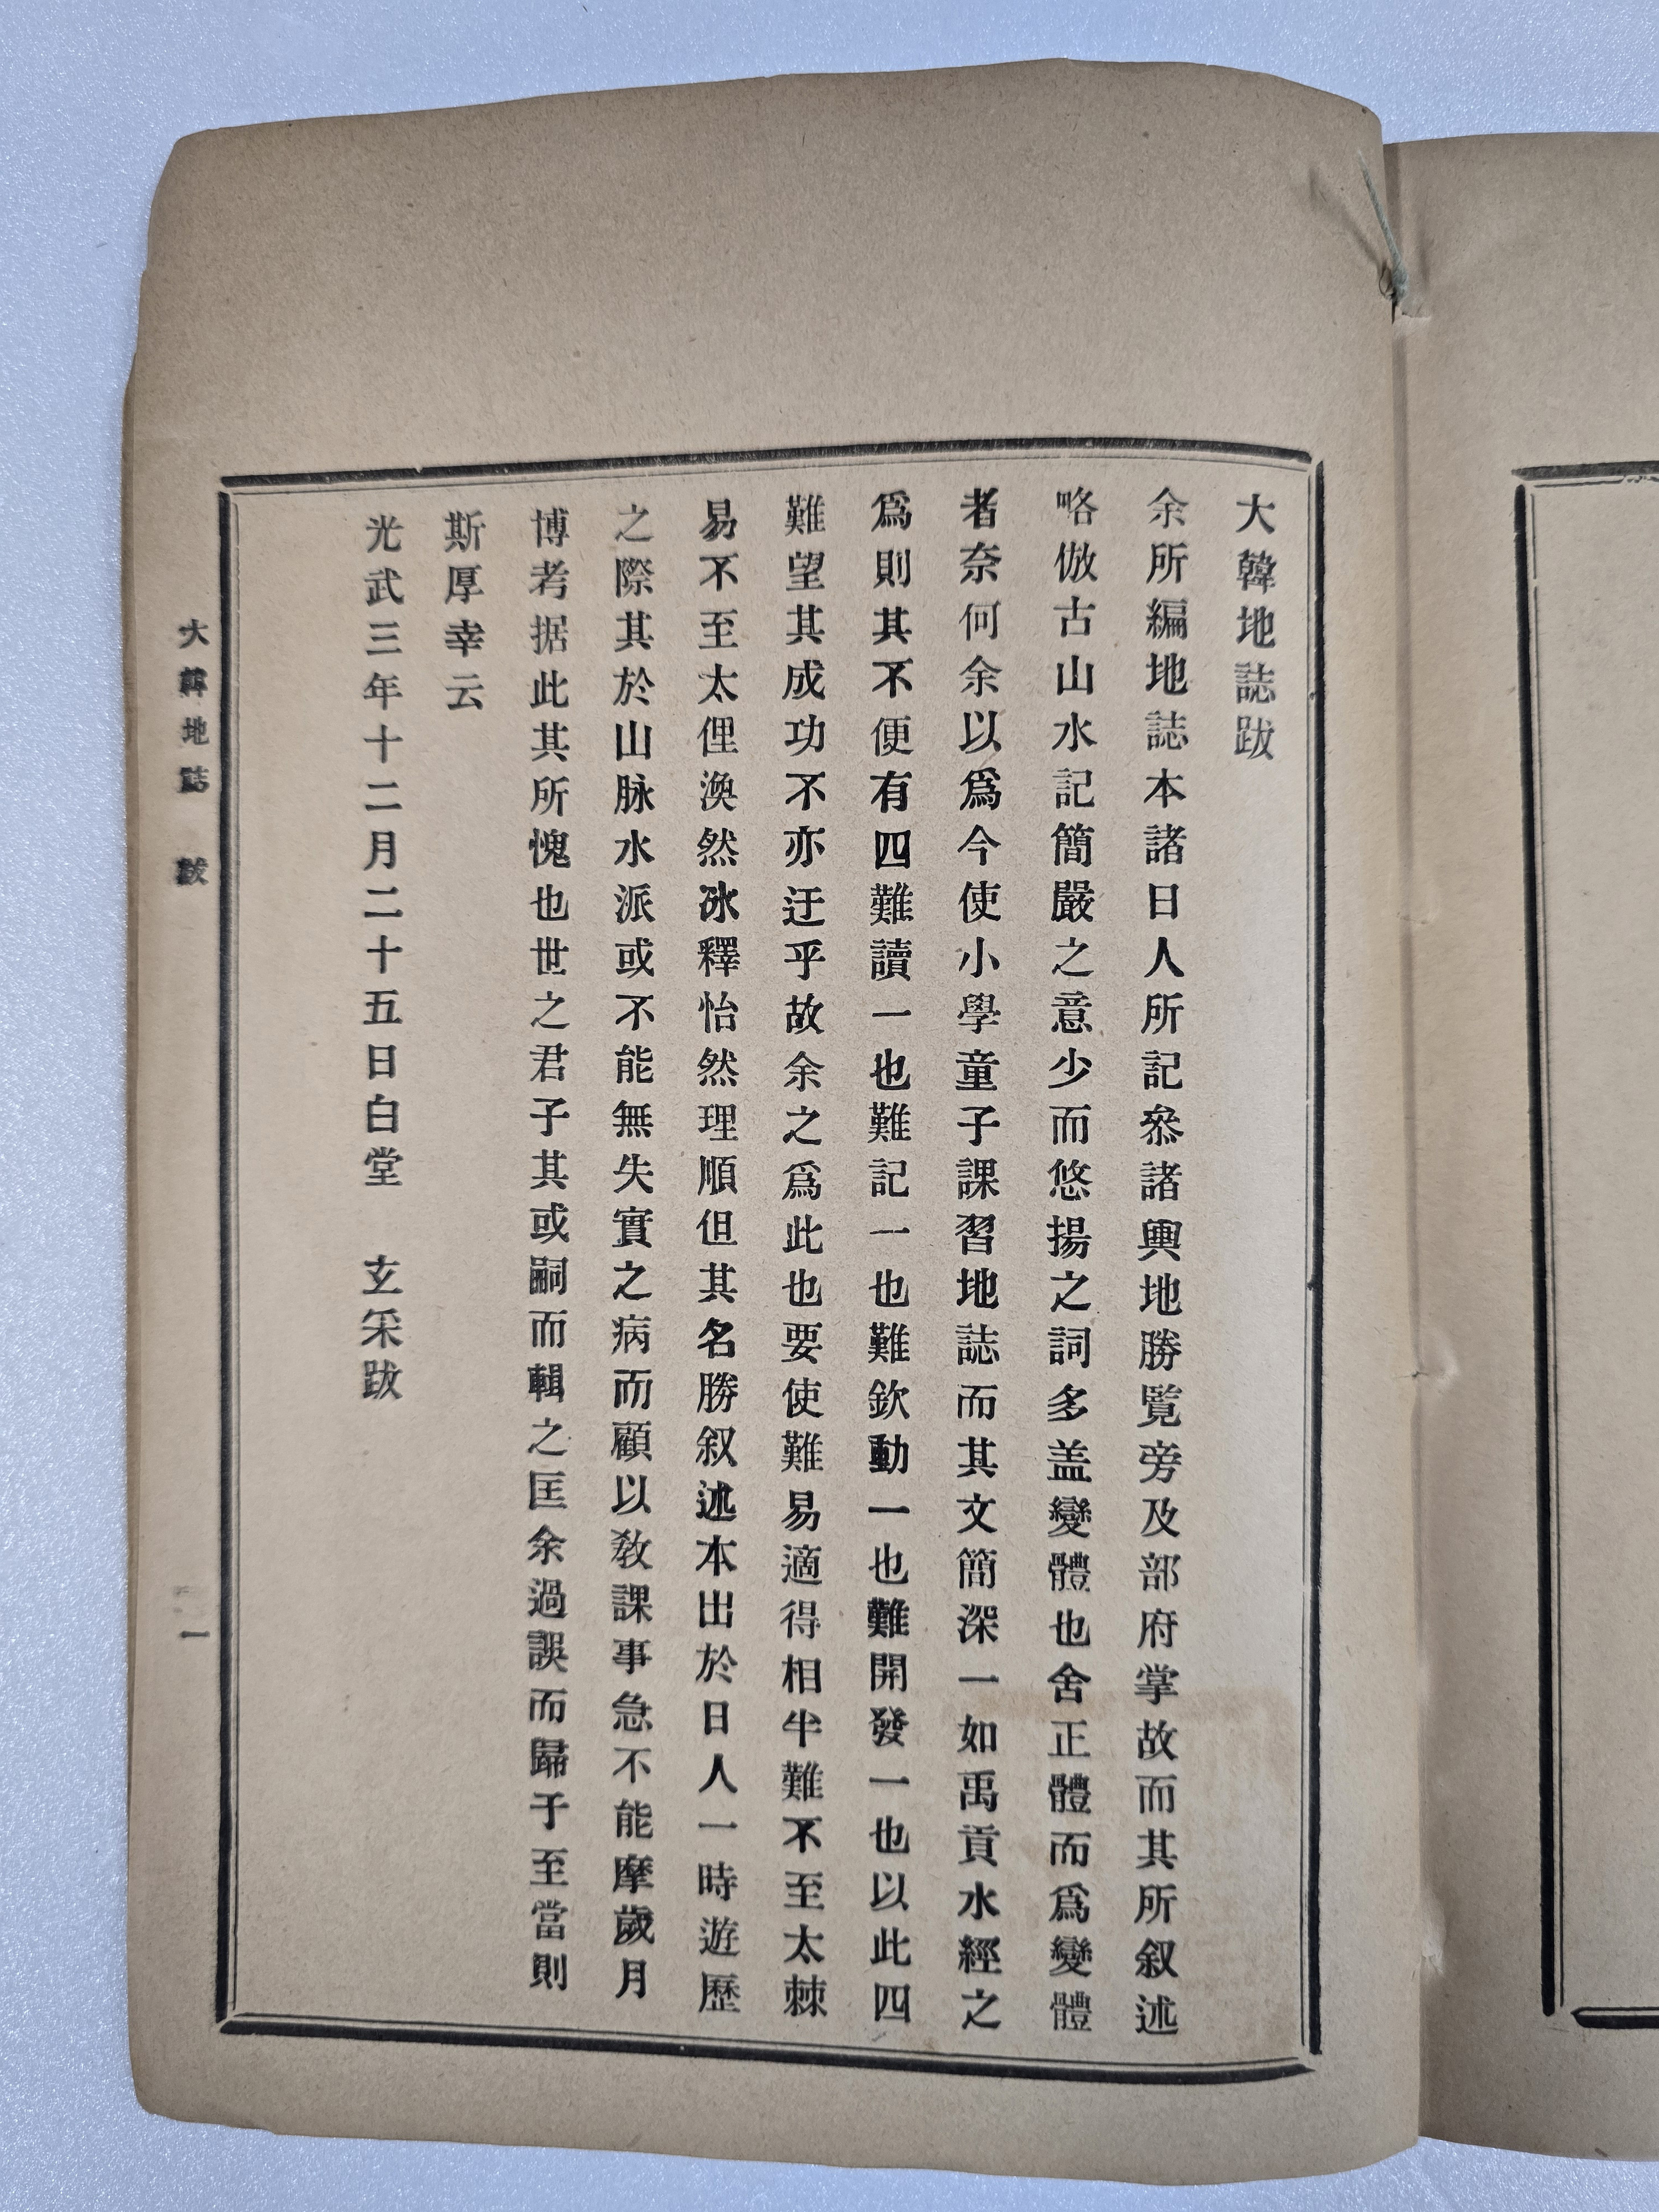 大韓地誌跋
余所編地誌本諸日人所記叅諸輿地勝覧旁及部府掌故而其所叙述
略倣古山水記簡嚴之意少而悠揚之詞多盖變體也舍正體而爲變體
者奈何余以爲今使小學童子課習地誌而其文簡深一如禹貢水經之
爲則其不便有四難讀一也難記一也難欽動一也難開發一也以此四
難望其成功不亦迂乎故余之爲此也要使難易適得相半難不至太棘
易不至太俚渙然氷釋怡然理順但其名勝叙述本出於日人一時遊歷
之際其於山脉水派或不能無失實之病而顧以敎課事急不能摩歲月
博考据此其所愧也世之君子其或嗣而輯之匡余過誤而歸于至當則
斯厚幸云
光武三年十二月二十五日白堂 玄采跋
大韓地誌 跋
一